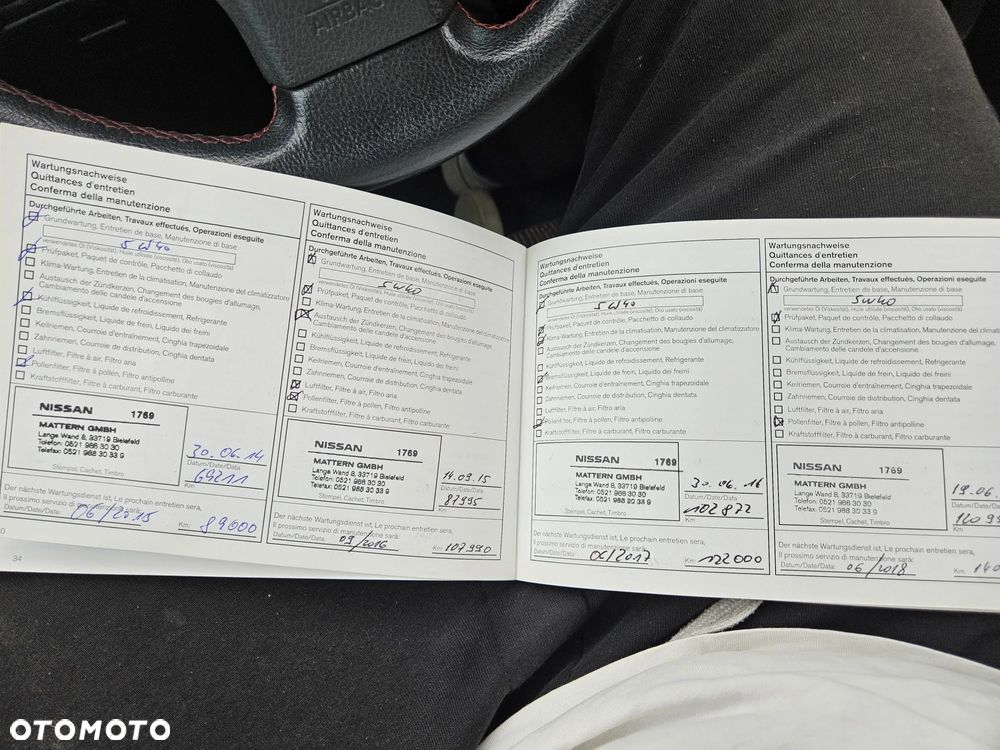 AIRBAG
Wartungsnachweise
Quittances d'entretien
Conferma della manutenzione
Durchgeführte Arbeiten, Travaux effectués, Operazioni eseguite
Grundwartung, Entretien de base, Manutenzione di base
5W40
verwendetes Öl (Viskosität), Huile utilisée (viscosité), Olio usato (viscosità)
Prüfpaket, Paquet de contrôle, Pacchetto di collaudo
Klima-Wartung, Entretien de la climatisation, Manutenzione del climatizzatore
Austausch der Zündkerzen, Changement des bougies d'allumage,
Cambiamento delle candele d'accensione
Kühlflüssigkeit, Liquide de refroidissement, Refrigerante
Bremsflüssigkeit, Liquide de frein, Liquido dei freini
Keilriemen, Courroie d'entraînement, Cinghia trapezoidale
Zahnriemen, Courroie de distribution, Cinghia dentata
Luftfilter, Filtre à air, Filtro aria
Pollenfilter, Filtre à pollen, Filtro antipolline
Kraftstofffilter, Filtre à carburant, Filtro carburante
NISSAN 1769
MATTERN GMBH
Lange Wand 8, 33719 Bielefeld
Telefon: 0521 988 30 30
Telefax: 0521 988 30 33 9
Stempel, Cachet, Timbro
30.06.14
Datum/Date/Data
69211
Km
Der nächste Wartungsdienst ist, Le prochain entretien sera,
Il prossimo servizio di manutenzione sarà:
Datum/Date/Data: 06/2015 Km: 89000
34
Wartungsnachweise
Quittances d'entretien
Conferma della manutenzione
Durchgeführte Arbeiten, Travaux effectués, Operazioni eseguite
Grundwartung, Entretien de base, Manutenzione di base
5W40
Prüfpaket, Paquet de contrôle, Pacchetto di collaudo
Klima-Wartung, Entretien de la climatisation, Manutenzione del climatizzatore
Austausch der Zündkerzen, Changement des bougies d'allumage,
Cambiamento delle candele d'accensione
Kühlflüssigkeit, Liquide de refroidissement, Refrigerante
Bremsflüssigkeit, Liquide de frein, Liquido dei freini
Keilriemen, Courroie d'entraînement, Cinghia trapezoidale
Zahnriemen, Courroie de distribution, Cinghia dentata
Luftfilter, Filtre à air, Filtro aria
Pollenfilter, Filtre à pollen, Filtro antipolline
Kraftstofffilter, Filtre à carburant, Filtro carburante
NISSAN 1769
MATTERN GMBH
Lange Wand 8, 33719 Bielefeld
Telefon: 0521 988 30 30
Telefax: 0521 988 30 33 9
Stempel, Cachet, Timbro
14.09.15
Datum/Date/Data
87995
Km
Der nächste Wartungsdienst ist, Le prochain entretien sera,
Il prossimo servizio di manutenzione sarà:
Datum/Date/Data: 09/2016 Km: 107.990
Wartungsnachweise
Quittances d'entretien
Conferma della manutenzione
Durchgeführte Arbeiten, Travaux effectués, Operazioni eseguite
Grundwartung, Entretien de base, Manutenzione di base
5W40
verwendetes Öl (Viskosität), Huile utilisée (viscosité), Olio usato (viscosità)
Prüfpaket, Paquet de contrôle, Pacchetto di collaudo
Klima-Wartung, Entretien de la climatisation, Manutenzione del climatizzatore
Austausch der Zündkerzen, Changement des bougies d'allumage,
Cambiamento delle candele d'accensione
Kühlflüssigkeit, Liquide de refroidissement, Refrigerante
Bremsflüssigkeit, Liquide de frein, Liquido dei freini
Keilriemen, Courroie d'entraînement, Cinghia trapezoidale
Zahnriemen, Courroie de distribution, Cinghia dentata
Luftfilter, Filtre à air, Filtro aria
Pollenfilter, Filtre à pollen, Filtro antipolline
Kraftstofffilter, Filtre à carburant, Filtro carburante
NISSAN 1769
MATTERN GMBH
Lange Wand 8, 33719 Bielefeld
Telefon: 0521 988 30 30
Telefax: 0521 988 30 33 9
Stempel, Cachet, Timbro
30.06.16
Datum/Date/Data
102822
Km
Der nächste Wartungsdienst ist, Le prochain entretien sera,
Il prossimo servizio di manutenzione sarà:
Datum/Date/Data: 06/2017 Km: 122000
Wartungsnachweise
Quittances d'entretien
Conferma della manutenzione
Durchgeführte Arbeiten, Travaux effectués, Operazioni eseguite
Grundwartung, Entretien de base, Manutenzione di base
5W40
Prüfpaket, Paquet de contrôle, Pacchetto di collaudo
Klima-Wartung, Entretien de la climatisation, Manutenzione del
Austausch der Zündkerzen, Changement des bougies d'allumage,
Cambiamento delle candele d'accensione
Kühlflüssigkeit, Liquide de refroidissement, Refrigerante
Bremsflüssigkeit, Liquide de frein, Liquido dei freini
Keilriemen, Courroie d'entraînement, Cinghia trapezoidale
Zahnriemen, Courroie de distribution, Cinghia dentata
Luftfilter, Filtre à air, Filtro aria
Pollenfilter, Filtre à pollen, Filtro antipolline
Kraftstofffilter, Filtre à carburant, Filtro carburante
NISSAN 1769
MATTERN GMBH
Lange Wand 8, 33719 Bielefeld
Telefon: 0521 988 30 30
Telefax: 0521 988 30 33 9
Stempel, Cachet, Timbro
19.06.
Datum/Date
Km
Der nächste Wartungsdienst ist, Le prochain entretien sera,
Il prossimo servizio di manutenzione sarà:
Datum/Date/Data: 06/2018 Km: 140
OTOMOTO